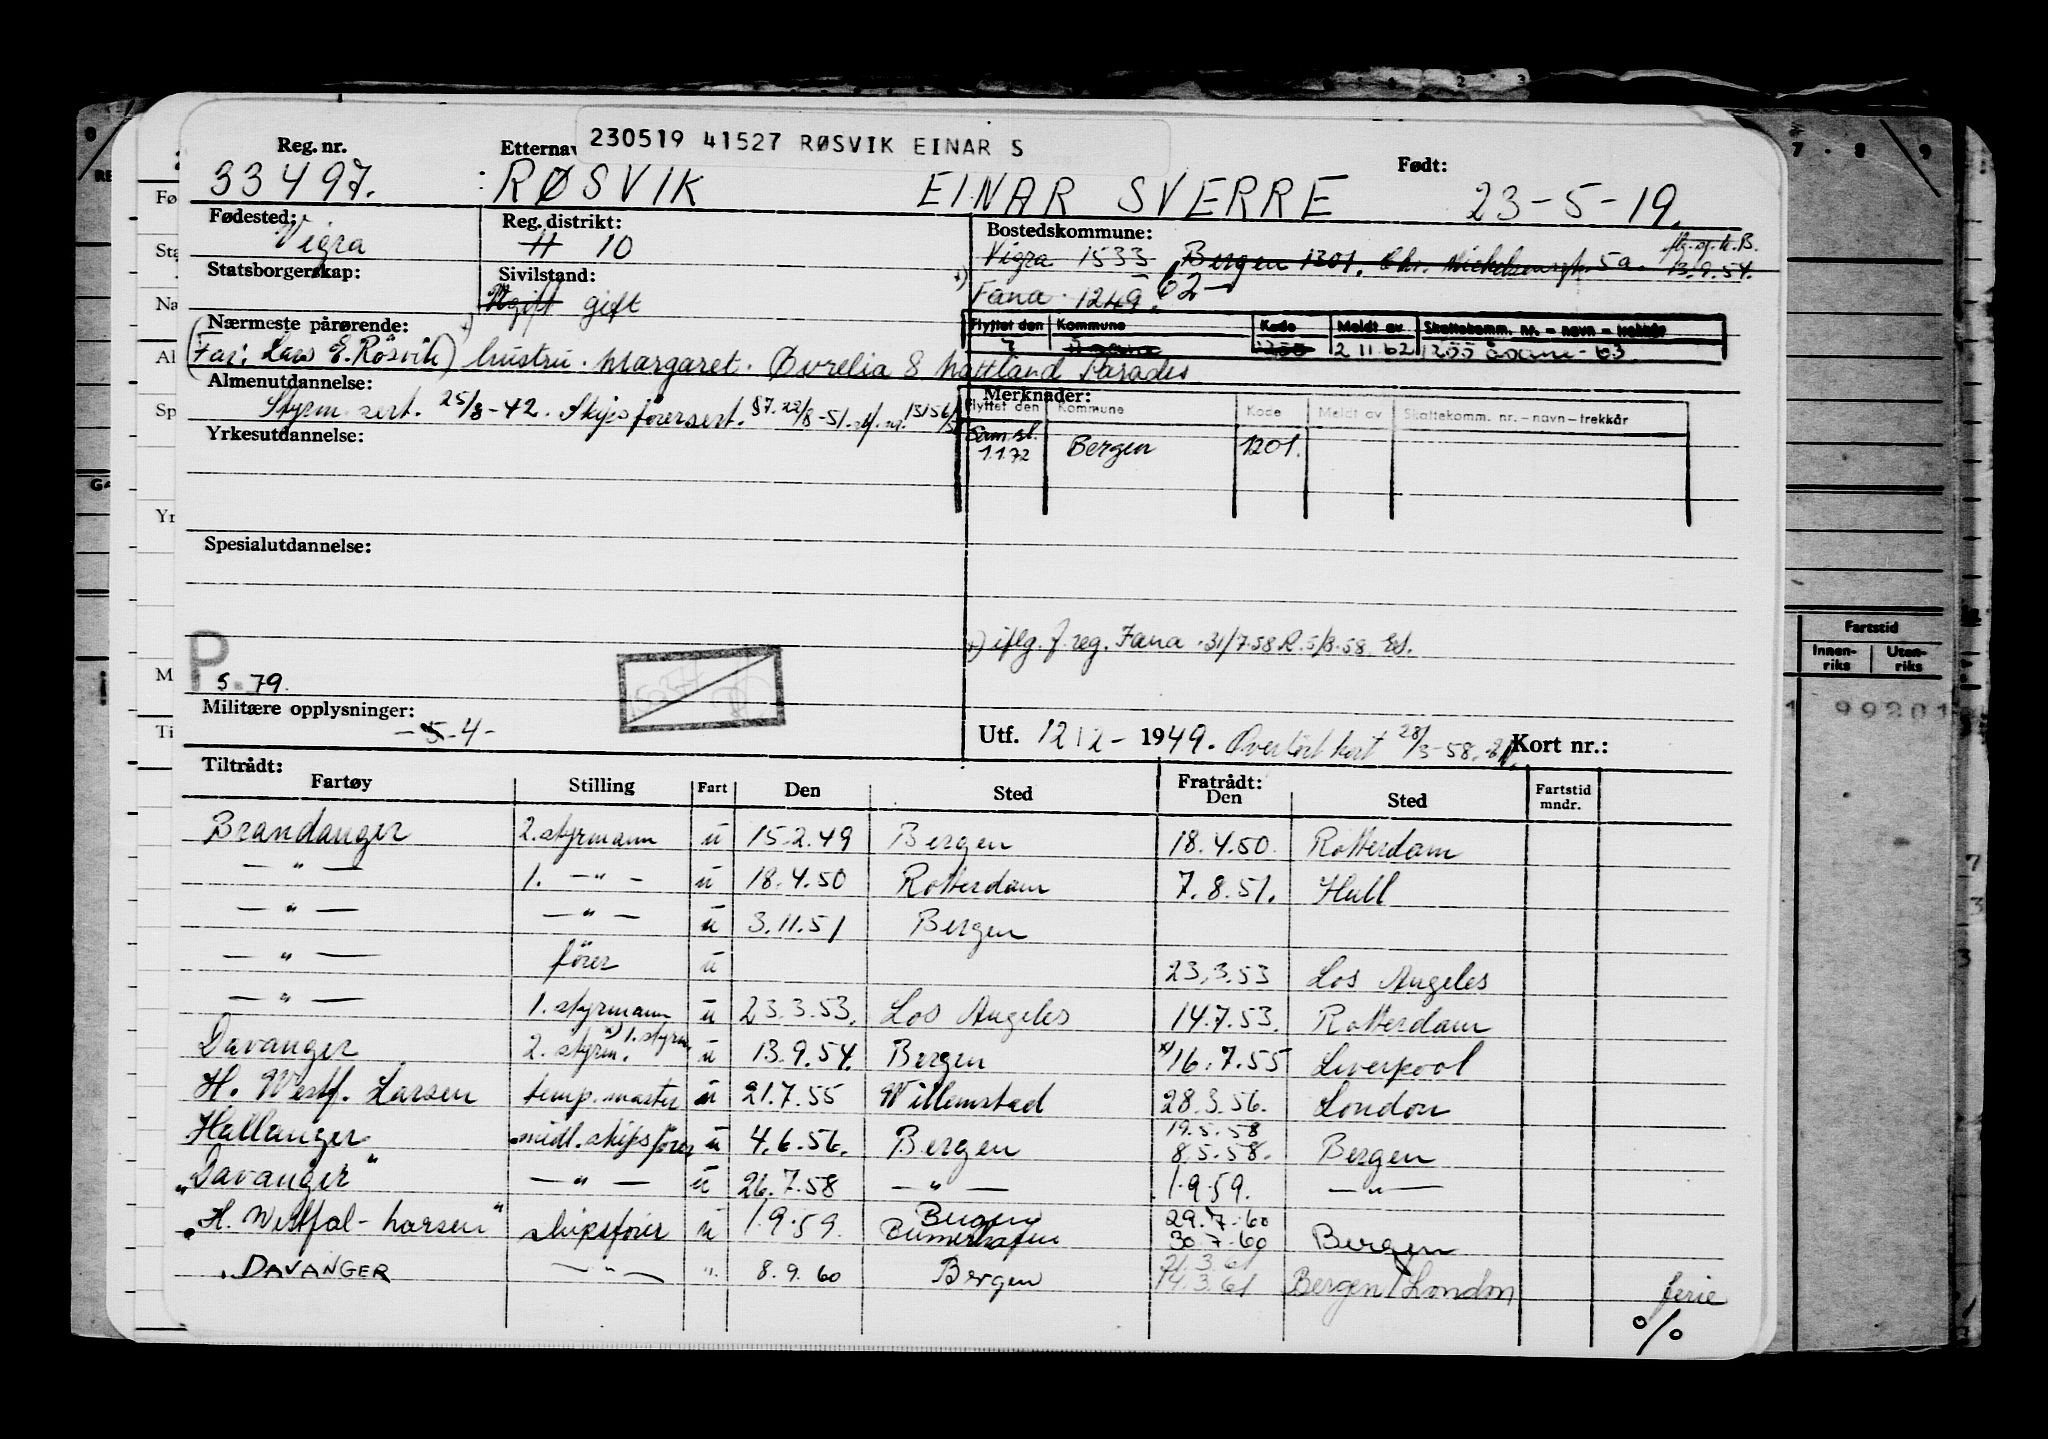 230519 41527 RØSVIK EINAR S
Reg. nr. Etternav Født:
33497. RØSVIK EINAR SVERRE 23-5-19.
Fødested: Reg. distrikt: Bostedskommune:
Vigra H 10 Vigra 1533 Bergen 1301. Chr. Michelsensgt. 5a. 13.9.54.
Statsborgerskap: Sivilstand:
Ugift gift Fana 1249. 62
Nærmeste pårørende: Flyttet den Kommune Kode Meldt av Skattekomm. nr. – navn – trekkår
(Far: Lars E. Røsvik) hustru. Margaret. Aurelia 8 Nattland Paradis
7 Åsane 1255 2 11.62 1255 Åsane - 63
Almenutdannelse: Merknader:
Styrm. sert. 25/3-42. Skipsförersert. §7. 22/8-51.
Flyttet den Kommune Kode Meldt av Skattekomm. nr. – navn – trekkår
Yrkesutdannelse:
Sam.sl. 1.1.72 Bergen 1201.
Spesialutdannelse:
x) iflg. f. reg. Fana. 31/7.58 R. 5/8.58
P.
S 79.
Militære opplysninger:
-5-4- Utf. 12/2 - 1949. Overfört kort 28/3-58. Kort nr.:
Tiltrådt: Fratrådt:
Fartøy Stilling Fart Den Sted Den Sted Fartstid mndr.
Brandanger 2. styrmann u 15.2.49 Bergen 18.4.50. Rotterdam
— " — 1. — " — u 18.4.50 Rotterdam 7.8.51. Hull
— " — — " — u 3.11.51 Bergen
— " — förer u 23.3.53 Los Angeles
— " — 1. styrmann u 23.3.53. Los Angeles 14.7.53. Rotterdam
Davanger 2. styrm. x) 1. styrm. u 13.9.54. Bergen x) 16.7.55 Liverpool
H. Westf. Larsen temp. master u 21.7.55 Willemstad 28.3.56. London
Hallanger midl. skipsförer u 4.6.56. Bergen 19.5.58 8.5.58. Bergen
"Davanger" — " — u 26.7.58 — " — 1.9.59. — " —
"H. Westfal-Larsen" skipsfører u 1.9.59. Bergen 29.7.60 30.7.60 Bergen
DAVANGER — " — " 8.9.60 Bergen 21.3.61 14.3.61 Bergen/London ferie
%
Fartstid
Innen-riks Uten-riks
99201